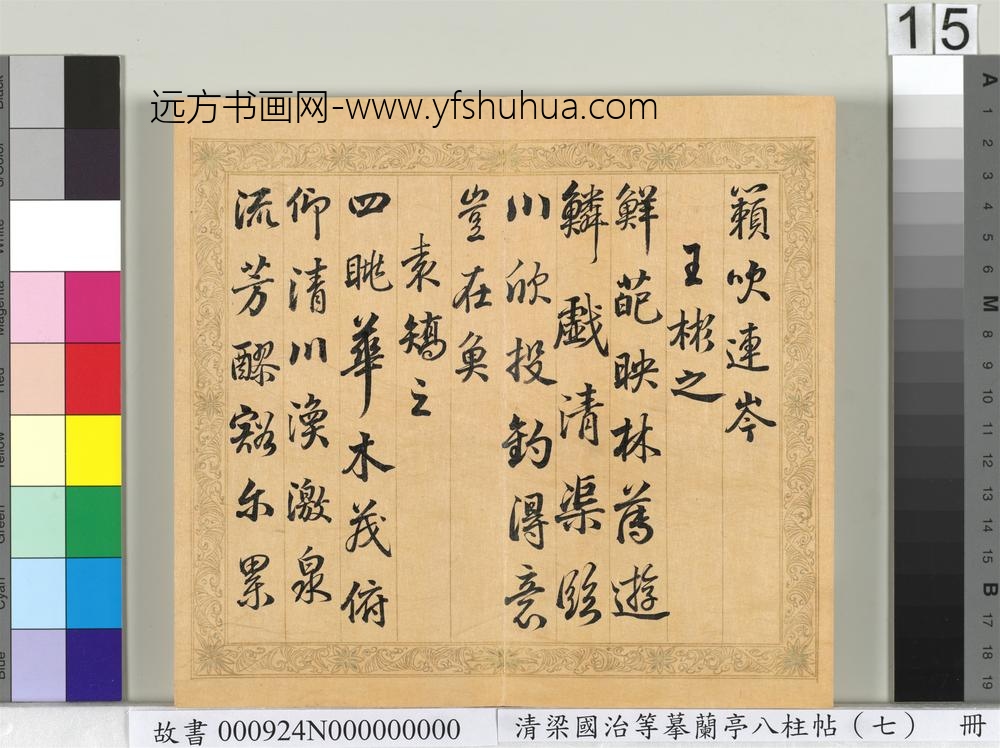 15
远方书画网-www.yfshuhua.com
籟吹連岑
王彬之
鮮葩映林薄遊
鱗戲清渠臨
川欣投釣得意
豈在魚
袁矯之
四眺華木茂俯
仰清川渙激泉
流芳醪豁尔累
故書 000924N000000000
清梁國治等摹蘭亭八柱帖（七） 冊
Black
3/Color
White
Magenta
Red
Yellow
Green
Cyan
Blue
A
1
2
3
4
5
6
M
8
9
10
11
12
13
14
15
B
17
18
19